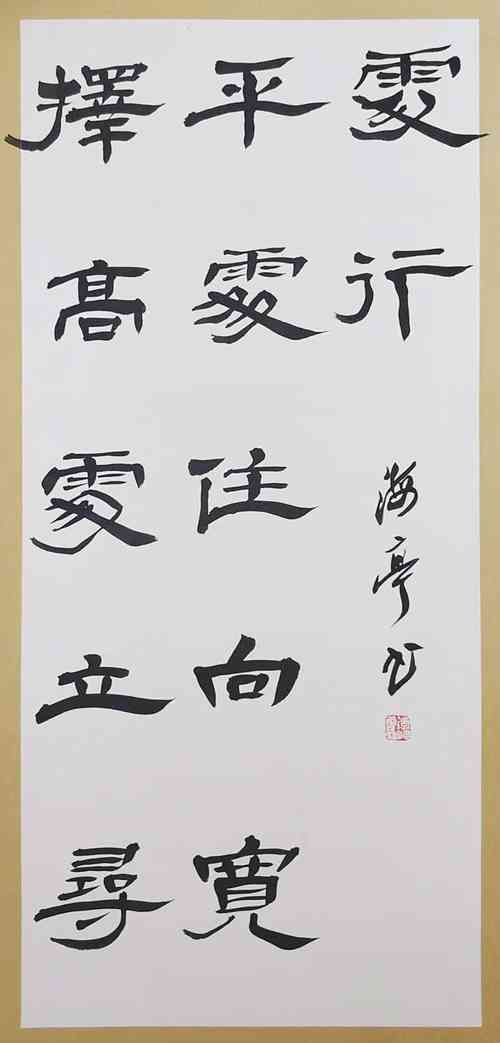 擇高處立尋
平處住向寬
處行
海亭书